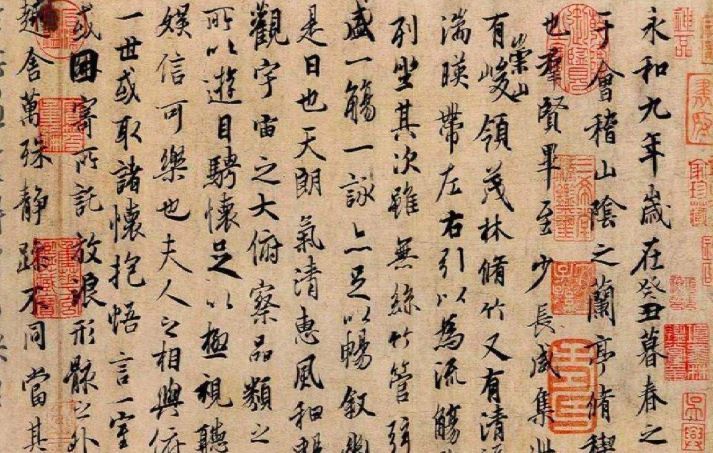 永和九年歲在癸丑暮春之
于會稽山陰之蘭亭脩禊
也羣賢畢至少長咸集此
有崇山峻領茂林脩竹又有清流
湍暎帶左右引以為流觴
列坐其次雖無絲竹管弦
盛一觴一詠亦足以暢敘幽
是日也天朗氣清惠風和暢
觀宇宙之大俯察品類之
所以遊目騁懷足以極視聽
娛信可樂也夫人之相與俯
一世或取諸懷抱悟言一室
或因寄所託放浪形骸之外
趣舍萬殊靜躁不同當其